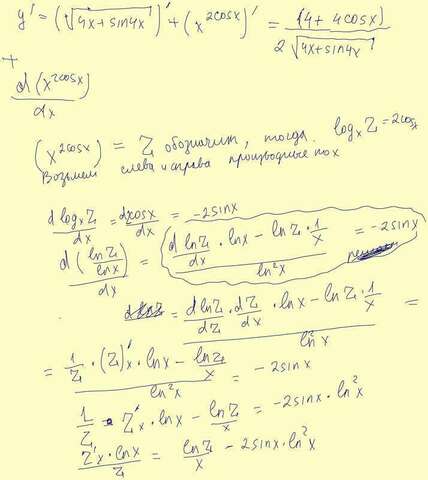 y' = (√4x+sin4x)' + (x^2cosx)' = (4+4cosx) / 2√4x+sin4x
+
d(x^2cosx) / dx
(x^2cosx) = Z обозначим, тогда. log_x Z = 2cosx
Возьмем слева и справа производные по x
d log_x Z / dx = d2cosx / dx = -2sinx
d(lnZ / lnx) / dx = (d lnZ / dx · lnx - lnZ · 1/x) / ln²x = -2sinx
= (d lnZ / dZ · dZ / dx · lnx - lnZ · 1/x) / ln²x =
= (1/Z · (Z)'x · lnx - lnZ / x) / ln²x = -2sinx
1/Z · Z'x · lnx - lnZ / x = -2sinx · ln²x
Z'x · lnx / Z = lnZ / x - 2sinx · ln²x